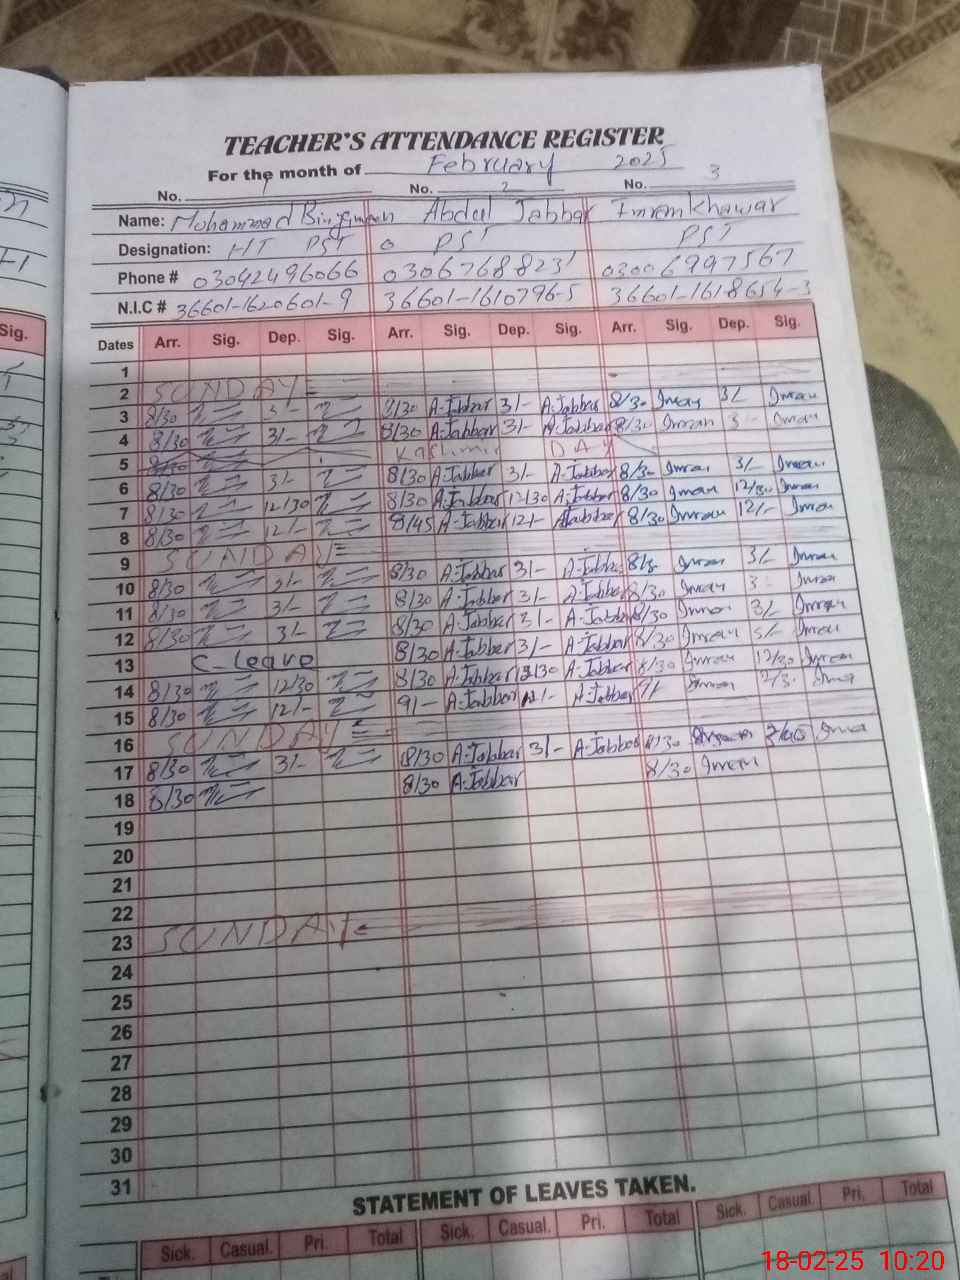 TEACHER'S ATTENDANCE REGISTER
For the month of February 2025
No. 1 No. 2 No. 3
Name: Mohammad Bin Abdul Jabbar Imran Khawar
Designation: HT PST PST PST
Phone # 03042496066 03067688231 03006997567
N.I.C # 36601-1620601-9 36601-1610796-5 36601-1618654-3
Dates Arr. Sig. Dep. Sig. Arr. Sig. Dep. Sig. Arr. Sig. Dep. Sig.
1
2 SUNDAY
3 8/30 3/- 8/30 A.Jabbar 3/- A.Jabbar 8/30 Imran 3/- Imran
4 8/30 3/- 8/30 A.Jabbar 3/- A.Jabbar 8/30 Imran 3 Imran
5 8/30 Kashmir DAY
6 8/30 3/- 8/30 A.Jabbar 3/- A.Jabbar 8/30 Imran 3/- Imran
7 8/30 12/30 8/30 A.Jabbar 12/30 A.Jabbar 8/30 Imran 12/30 Imran
8 8/30 12/- 8/45 A.Jabbar 12/- A.Jabbar 8/30 Imran 12/- Imran
9 SUNDAY
10 8/30 8/30 A.Jabbar 3/- A.Jabbar 8/30 Imran 3/- Imran
11 8/30 3/- 8/30 A.Jabbar 3/- A.Jabbar 8/30 Imran 3 Imran
12 8/30 3/- 8/30 A.Jabbar 3/- A.Jabbar 8/30 Imran 3/- Imran
13 C-Leave 8/30 A.Jabbar 3/- A.Jabbar 8/30 Imran Imran
14 8/30 12/30 8/30 A.Jabbar 12/30 A.Jabbar 8/30 Imran 12/30 Imran
15 8/30 12/- 9/- A.Jabbar 12/- A.Jabbar 9/- Imran Imran
16 SUNDAY
17 8/30 3/- 8/30 A.Jabbar 3/- A.Jabbar 8/30 Imran Imran
18 8/30 8/30 A.Jabbar 8/30 Imran
19
20
21
22
23 SUNDAY
24
25
26
27
28
29
30
31
STATEMENT OF LEAVES TAKEN.
Sick. Casual. Pri. Total Sick. Casual. Pri. Total Sick. Casual. Pri. Total
Sig.
18-02-25 10:20